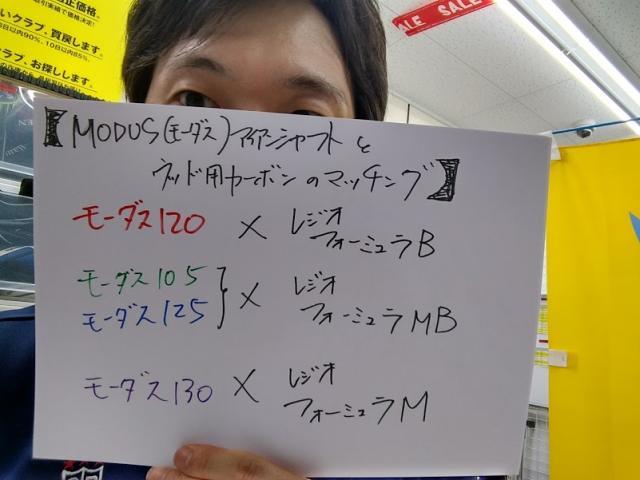 適正価格。
取引実績で価格決定!
いクラブ、買戻します。
5日以内90%、10日以内85%
クラブ、お探しします。
SALE SALE
【MODUS(モーダス)アイアンシャフトと
ウッド用カーボンのマッチング】
モーダス120 × レジオ
フォーミュラB
モーダス105
モーダス125 } × レジオ
フォーミュラMB
モーダス130 × レジオ
フォーミュラM